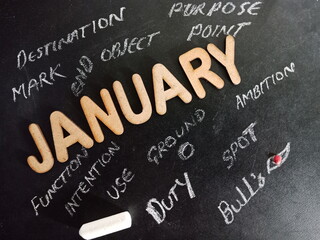 DESTINATION
PURPOSE
MARK
END OBJECT
POINT
JANUARY
AMBITION
FUNCTION
INTENTION
USE
GROUND
SPOT
DUTY
Bull's